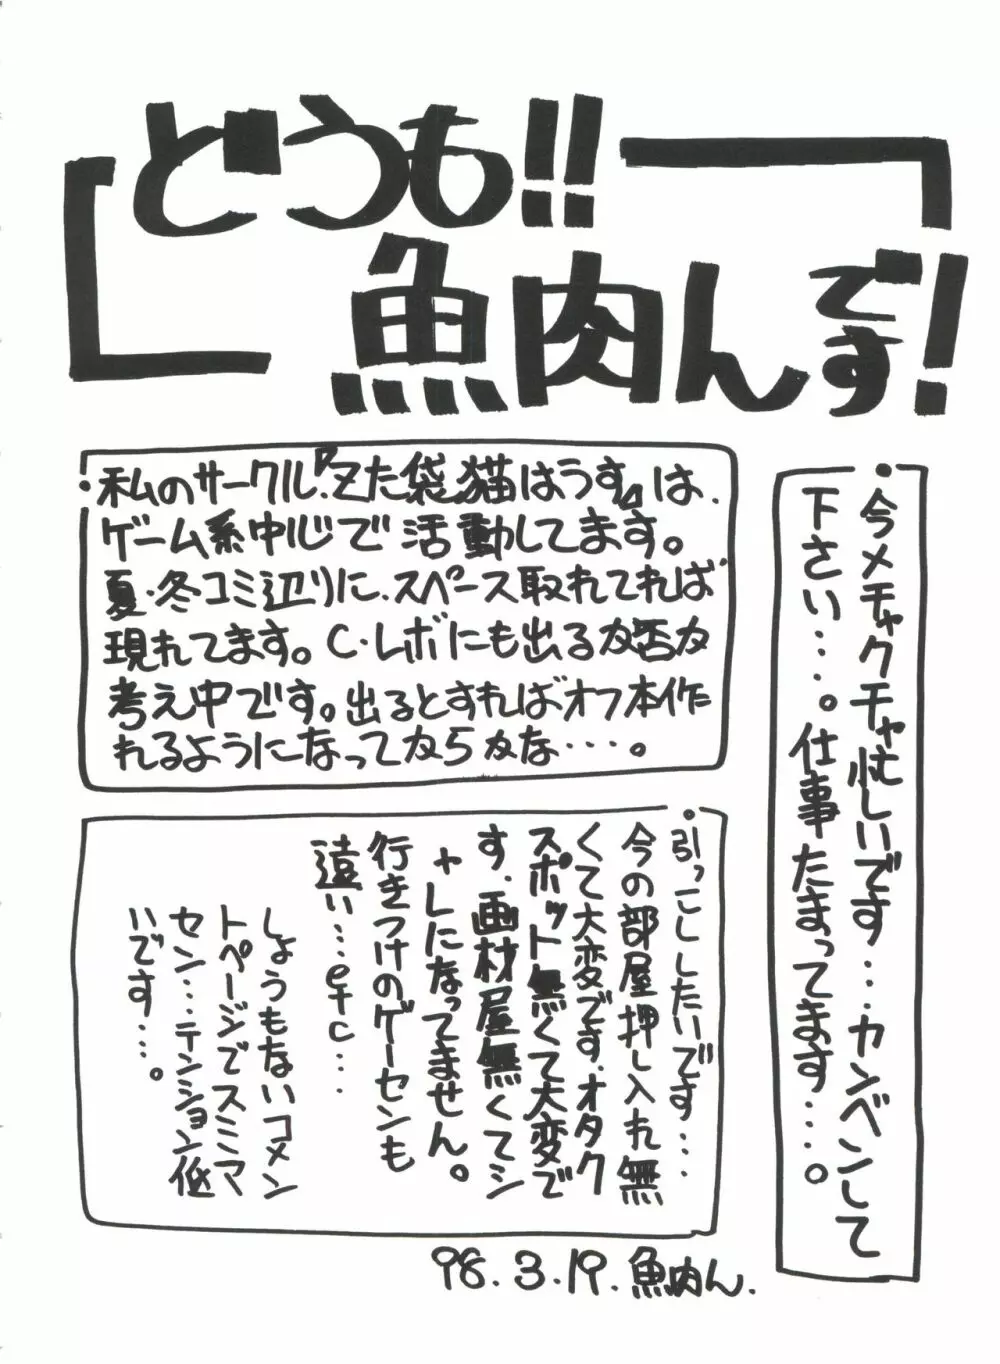 どうも!!
魚肉んです!
・今メチャクチャ忙しいです…カンベンして
下さい……。仕事たまってます……。
・私のサークル『Zた袋猫はうす』は、
ゲーム系中心で活動してます。
夏・冬コミ辺りに、スペース取れてれば
現れてます。C・レボにも出るか否か
考え中です。出るとすればオフ本作
れるようになってからかな…。
・引っこししたいです…
今の部屋押し入れ無
くて大変です、オタク
スポット無くて大変で
す、画材屋無くてシ
ャレになってません。
行きつけのゲーセンも
遠い…etc…
しょうもないコメン
トページでスミマ
セン…テンション低
いです…。
98.3.19.魚肉ん.